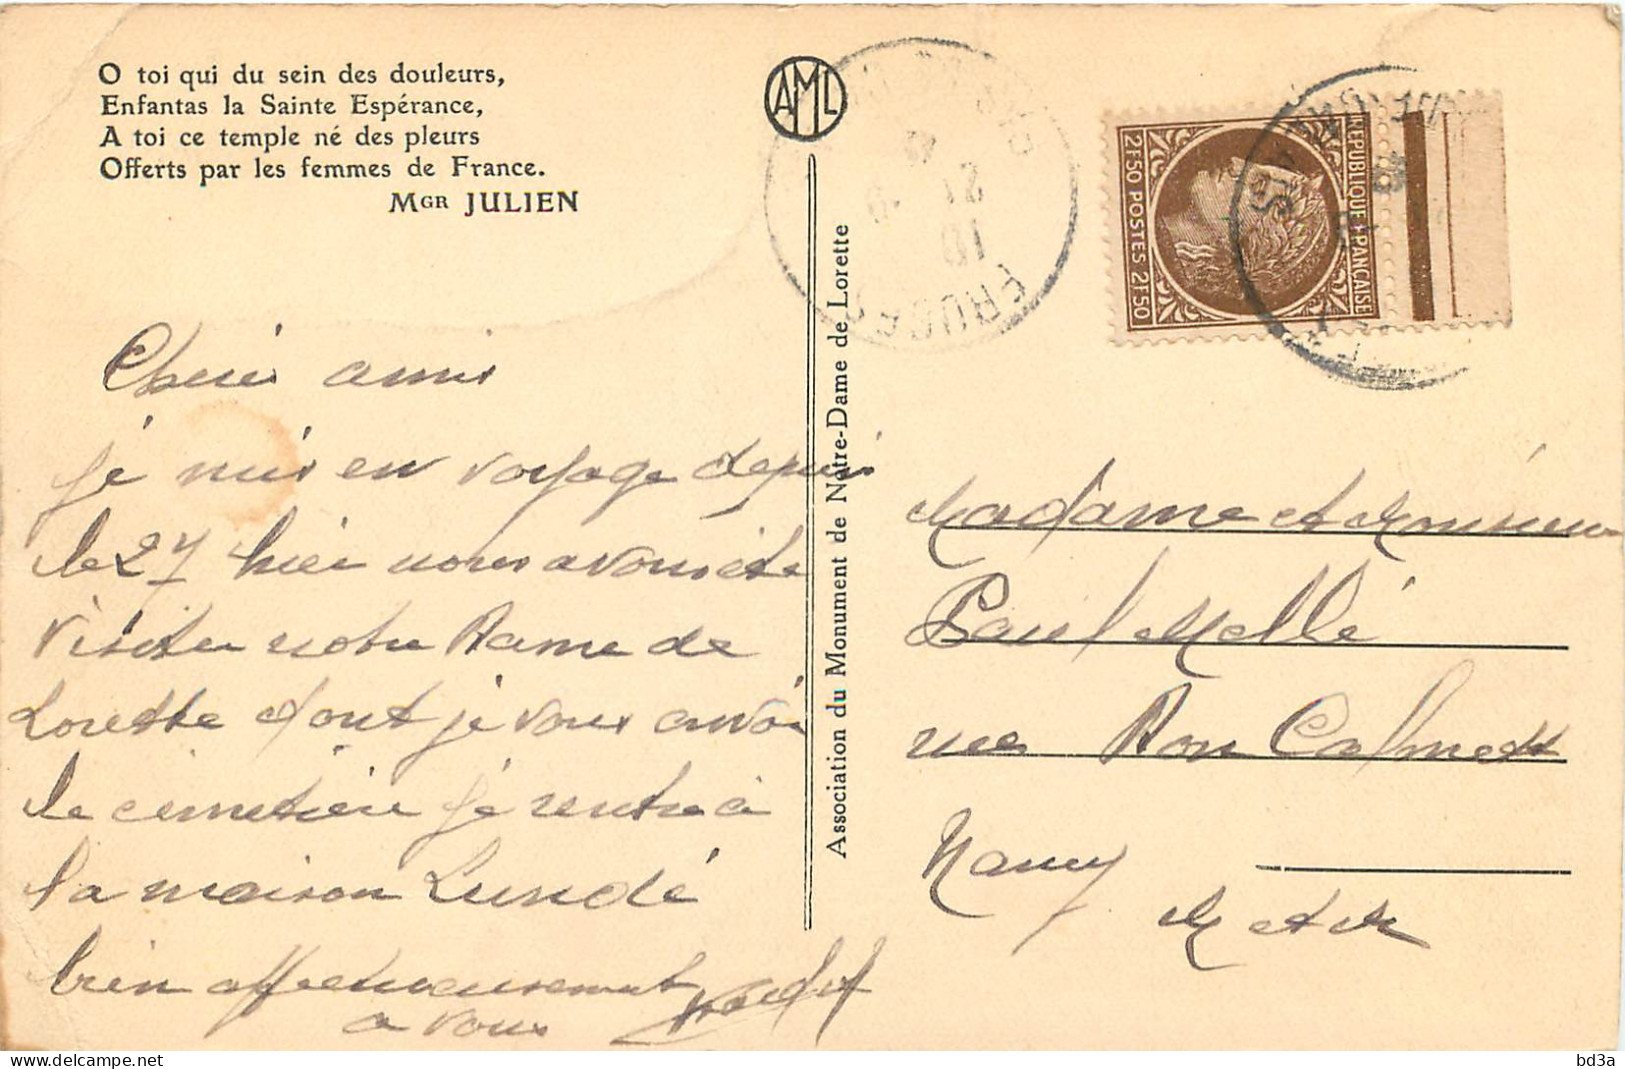 O toi qui du sein des douleurs,
Enfantas la Sainte Espérance,
A toi ce temple né des pleurs
Offerts par les femmes de France.
MGR JULIEN
AML
Association du Monument de Notre-Dame de Lorette
REPUBLIQUE FRANÇAISE
2F50 POSTES 2F50
21
10
Cheris amis
je suis en voyage depuis
le 27 hier nous avons ete
visiter notre Dame de
Lorette dont je vous envoi
le cemetière je rentre à
la maison Lundé
bien affectueusement
a vous
Madame et Monsieur
Paul Mellé
rue Don Calmet
Nancy
M et M
bd3a